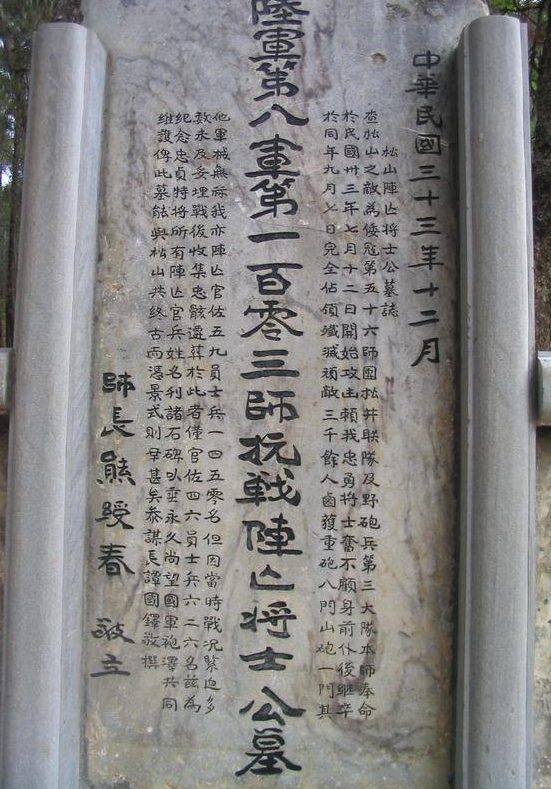 中華民國三十三年十二月
松山陣亡將士公墓誌
查松山之敵為倭寇第五十六師團松井联隊及野砲兵第三大隊本師奉命
於民國卅三年七月十二日開始攻击賴我忠勇将士奮不顧身前仆後継卒
於同年九月七日完全佔領殲滅頑敵三千餘人鹵獲重砲八門山砲一門其
陸軍第八軍第一百零三師抗戰陣亡将士公墓
他軍械無祘我亦陣亡官佐五九員士兵一四五零名但因當時戰况緊迫多
数未及妥埋戰後收集忠骸遷葬於此者僅官佐四六員士兵六二六名兹為
紀念忠貞特將所有陣亡官兵姓名刋諸石碑以垂永久尚望國軍袍澤共同
維護俾此墓能與松山共終古而憑景式則幸甚矣叅謀長譚國鐸敬撰
師長熊綬春 敬立